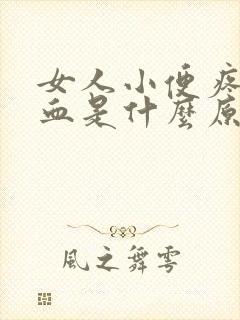 女人小便疼
血是什麼原
風之舞雲